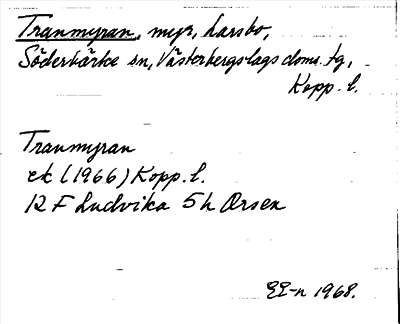 Tranmyran, myr, Larsbo,
Söderbärke sn, Västerbergslags doms. tg,
Kopp. l.
Tranmyran
ek (1966) Kopp. l.
12 F Ludvika 5 h Orsen
1968.